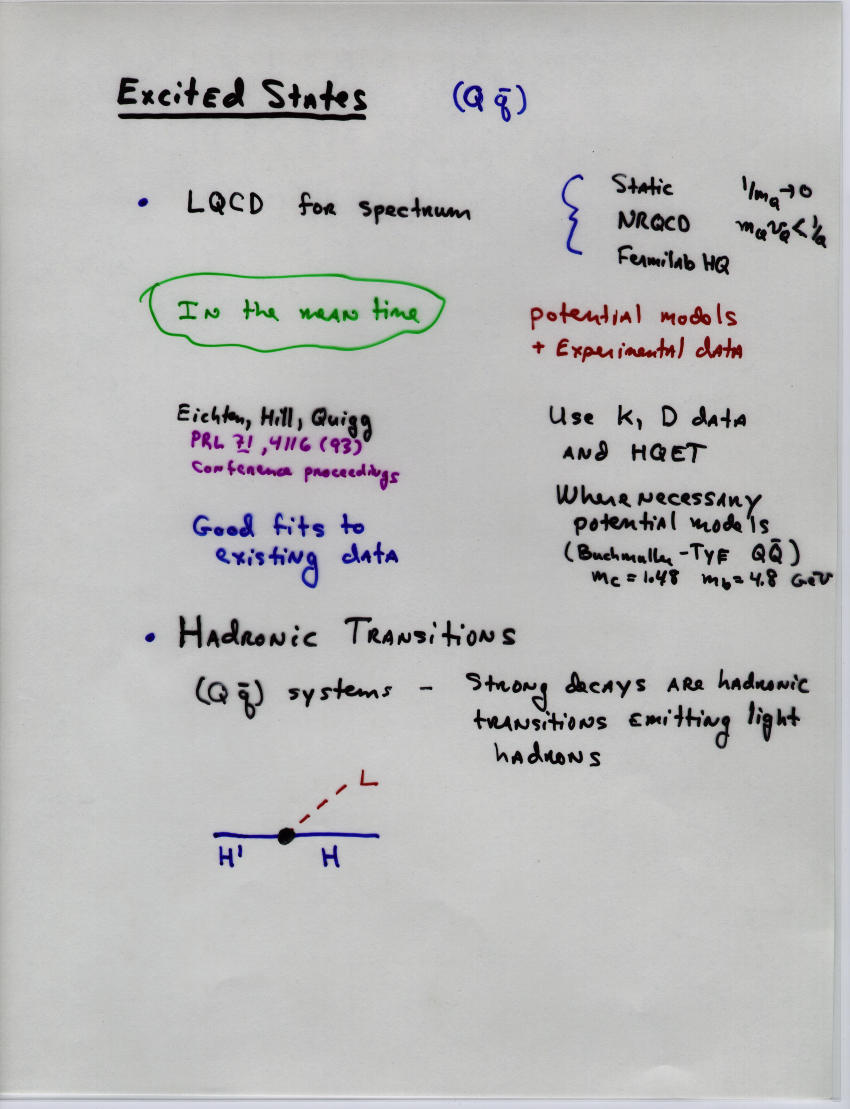 Excited States (Q q̄)
• LQCD for spectrum
{ Static 1/m_Q → 0
NRQCD m_Q v_Q < 1/a
Fermilab HQ
In the mean time
potential models
+ Experimental data
Eichten, Hill, Quigg
PRL 71, 4116 (93)
Conference proceedings
Use K, D data
and HQET
Good fits to
existing data
Where necessary
potential models
(Buchmuller-Tye QQ̄)
m_c = 1.48 m_b = 4.8 GeV
• Hadronic Transitions
(Q q̄) systems - Strong decays are hadronic
transitions emitting light
hadrons
L
H' H